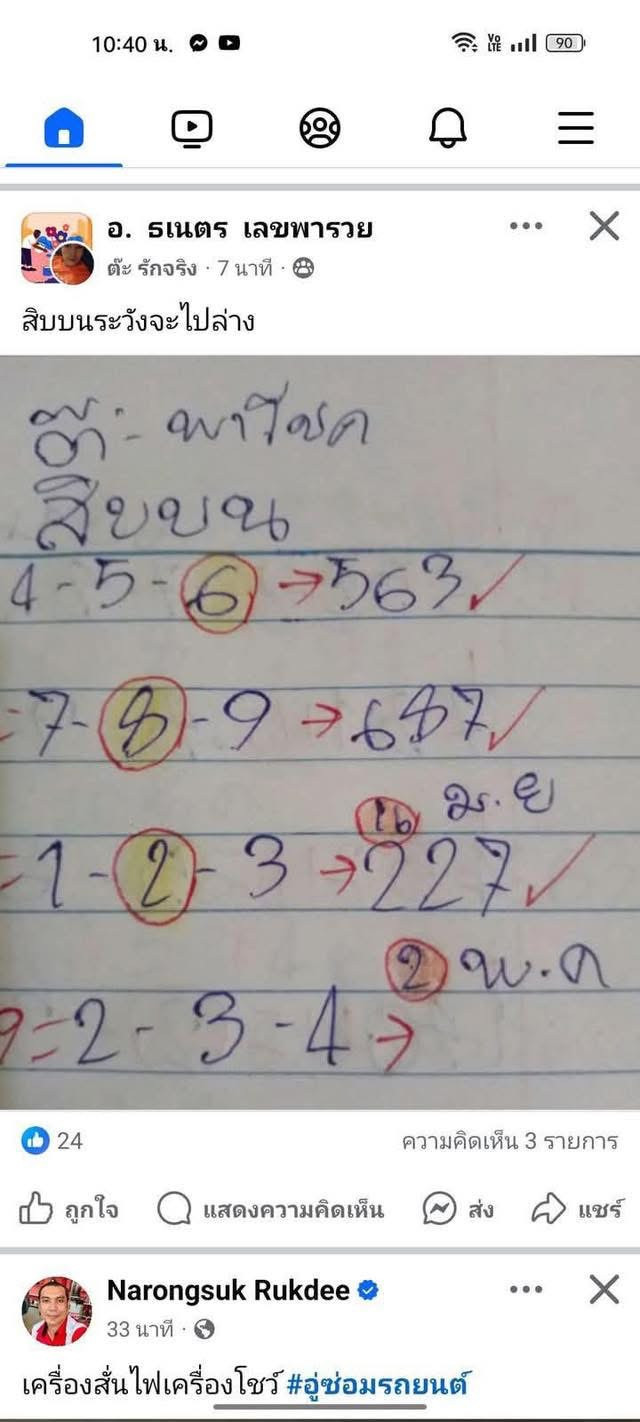 10:40 น.
Vo LTE 90
อ. ธเนตร เลขพารวย
ต๊ะ รักจริง · 7 นาที ·
สิบบนระวังจะไปล่าง
ต๊ะ - พาโชค
สิบบน
4 - 5 - 6 → 563 ✓
= 7 - 8 - 9 → 687 ✓
16 ม.ย
= 1 - 2 - 3 → 227 ✓
2 พ.ค
9 = 2 - 3 - 4 →
24
ความคิดเห็น 3 รายการ
ถูกใจ แสดงความคิดเห็น ส่ง แชร์
Narongsuk Rukdee
33 นาที ·
เครื่องสั่นไฟเครื่องโชว์ #อู่ซ่อมรถยนต์